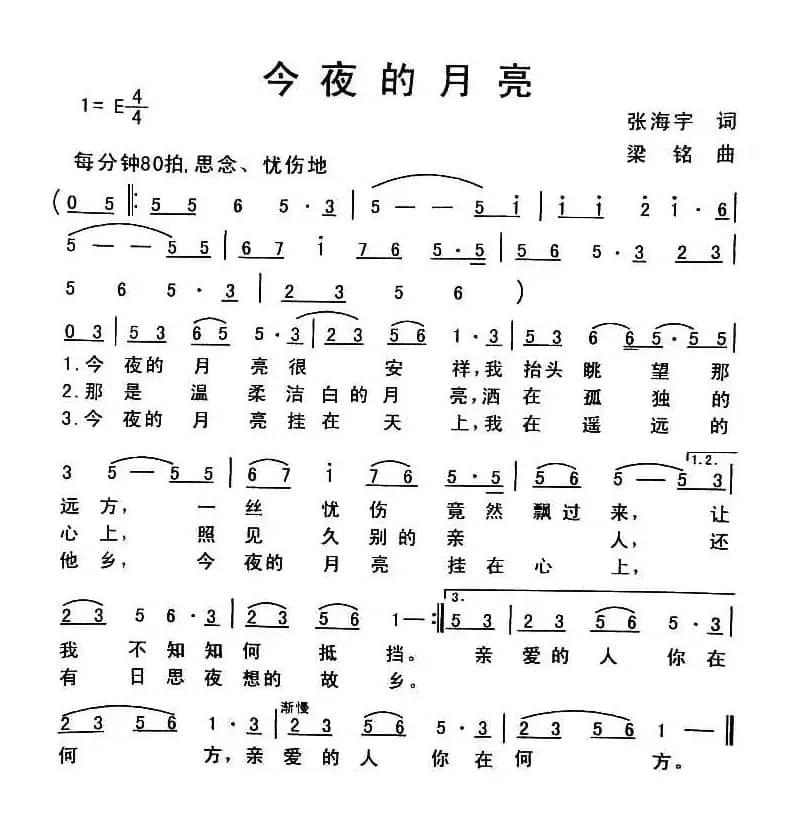 今夜的月亮
1= E 4/4
张海宇 词
梁铭 曲
每分钟80拍,思念、忧伤地
( 0 5 ‖: 5 5 6 5 · 3 | 5 — — 5 i | i i 2 i · 6 |
5 — — 5 5 | 6 7 i 7 6 5 · 5 | 5 6 5 · 3 2 3 |
5 6 5 · 3 | 2 3 5 6 )
0 3 | 5 3 6 5 5 · 3 | 2 3 5 6 1 · 3 | 5 3 6 6 5 · 5 |
1.今夜的月亮很安祥,我抬头眺望那
2.那是温柔洁白的月亮,洒在孤独的
3.今夜的月亮挂在天上,我在遥远的
3 5 — 5 5 | 6 7 i 7 6 5 · 5 | 5 6 5 — 1.2. 5 3 |
远方,一丝忧伤竟然飘过来,让
心上,照见久别的亲人,还
他乡,今夜的月亮挂在心上,
2 3 5 6 · 3 | 2 3 5 6 1 — :‖ 3. 5 3 | 2 3 5 6 5 · 3 |
我不知知何抵挡。亲爱的人你在
有日思夜想的故乡。
2 3 5 6 1 · 3 | 渐慢 2 3 5 6 5 · 3 | 2 3 5 6 1 — ‖
何方,亲爱的人你在何方。